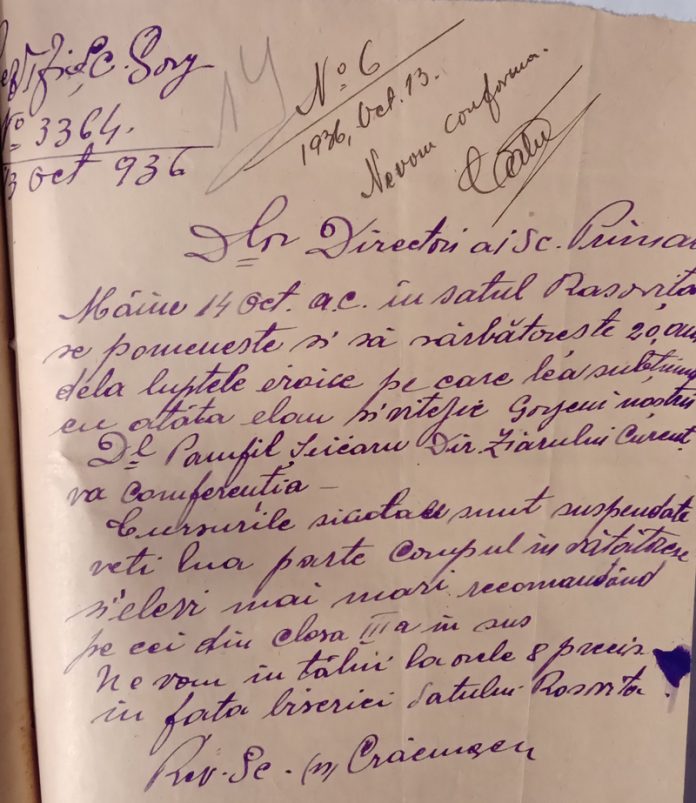 Sc. Gorj
No 3364.
3 Oct 936
14
No 6
1936, Oct. 13.
Ne vom conforma.
Dlor Directori ai Sc. Primar
Mâine 14 Oct. a.c. în satul Rasovița
se pomenește si să sărbătorește 20 ani
dela luptele eroice pe care lea susținut
cu atâta elan si vitejie Gorjeni noștri
Dl Pamfil Șeicaru Dir. Ziarului Curent
va conferenția —
Cursurile sunt suspendate
veti lua parte corpul
si elevi mai mari recomandând
pe cei din clasa III a în sus
Ne vom întâlni la orele 8 precis
în fata biserici satului Rasovita.
Rev. Sc. (ss) Crăciunescu